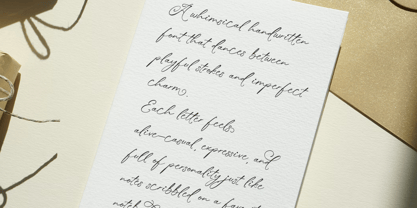 A whimsical handwritten
font that dances between
playful strokes and imperfect
charm.
Each letter feels
alive–casual, expressive, and
full of personality, just like
notes scribbled on a favorite